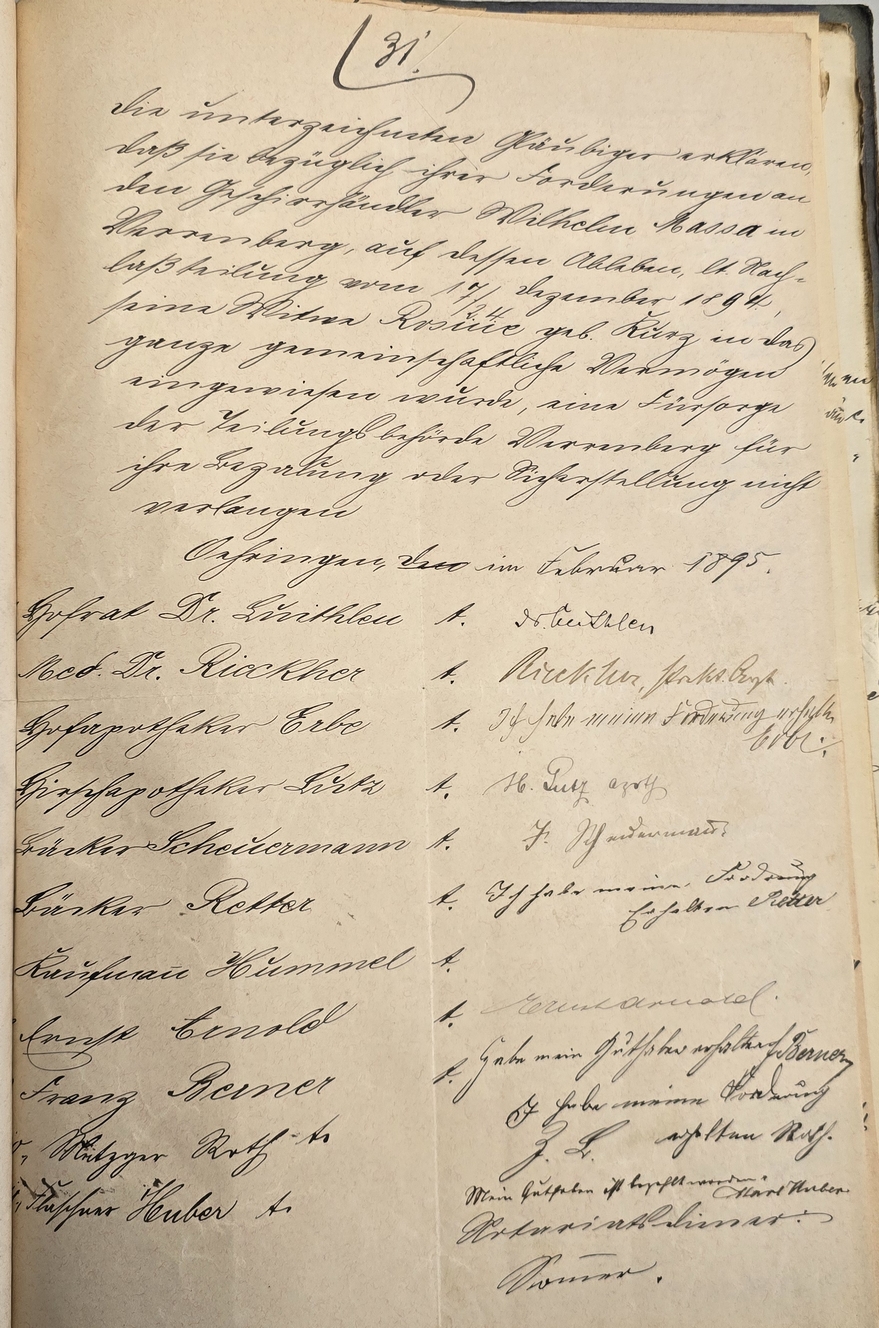 31.
Die unterzeichneten Gläubiger erklären,
daß sie bezüglich ihrer Forderungen an
den Geschirrhändler Wilhelm Massa in
Verrenberg, auf dessen Ableben, lt. Nach-
laßteilung vom 17/24 Dezember 1894,
seine Witwe Rosine geb. Kurz in das
ganze gemeinschaftliche Vermögen
eingewiesen wurde, eine Fürsorge
der Teilungsbehörde Verrenberg für
ihre Bezalung oder Sicherstellung nicht
verlangen
Oehringen, den im Februar 1895.
Hofrat Dr. Luithlen t. Dr. Luithlen
Med. Dr. Rieckher t. Rieckher, prakt. Arzt.
Hofapotheker Erbe t. Ich habe meine Forderung erhalten
Erbe.
Hirschapotheker Lutz t. H. Lutz
Bäcker Scheuermann t. F. Scheuermann
Bäcker Retter t. Ich habe meine Forderung
Erhalten Retter
Kaufmann Hummel t.
Ernst Arnold t. Ernst Arnold.
Franz Berner t. Habe mein Guthaben erhalten Berner
Metzger Roth t. I habe meine Forderung
erhalten Roth.
Z. B.
Flaschner Huber t. Mein Guthaben ist bezahlt worden. Huber
Notariatsdiener:
Sommer.